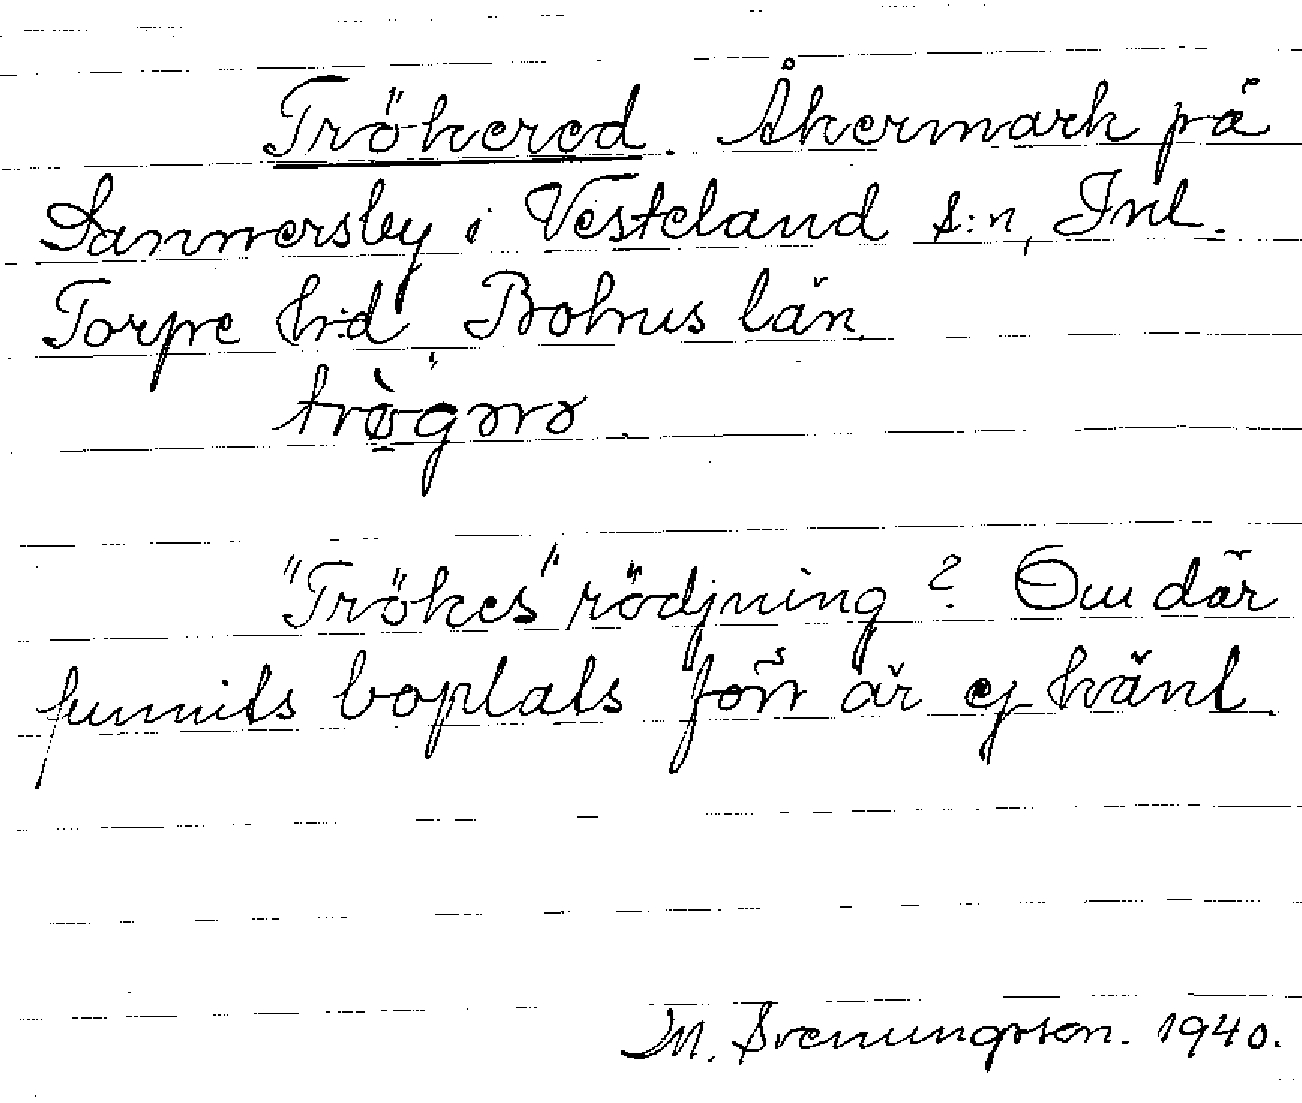 Trökered. Åkermark på
Sannersby i Vesteland s:n, Inl.
Torpe h:d Bohus län.
trø̀gərə.
"Trökes" rödjning? Om där
funnits boplats förr är ej känt.
M. Svenungsson. 1940.